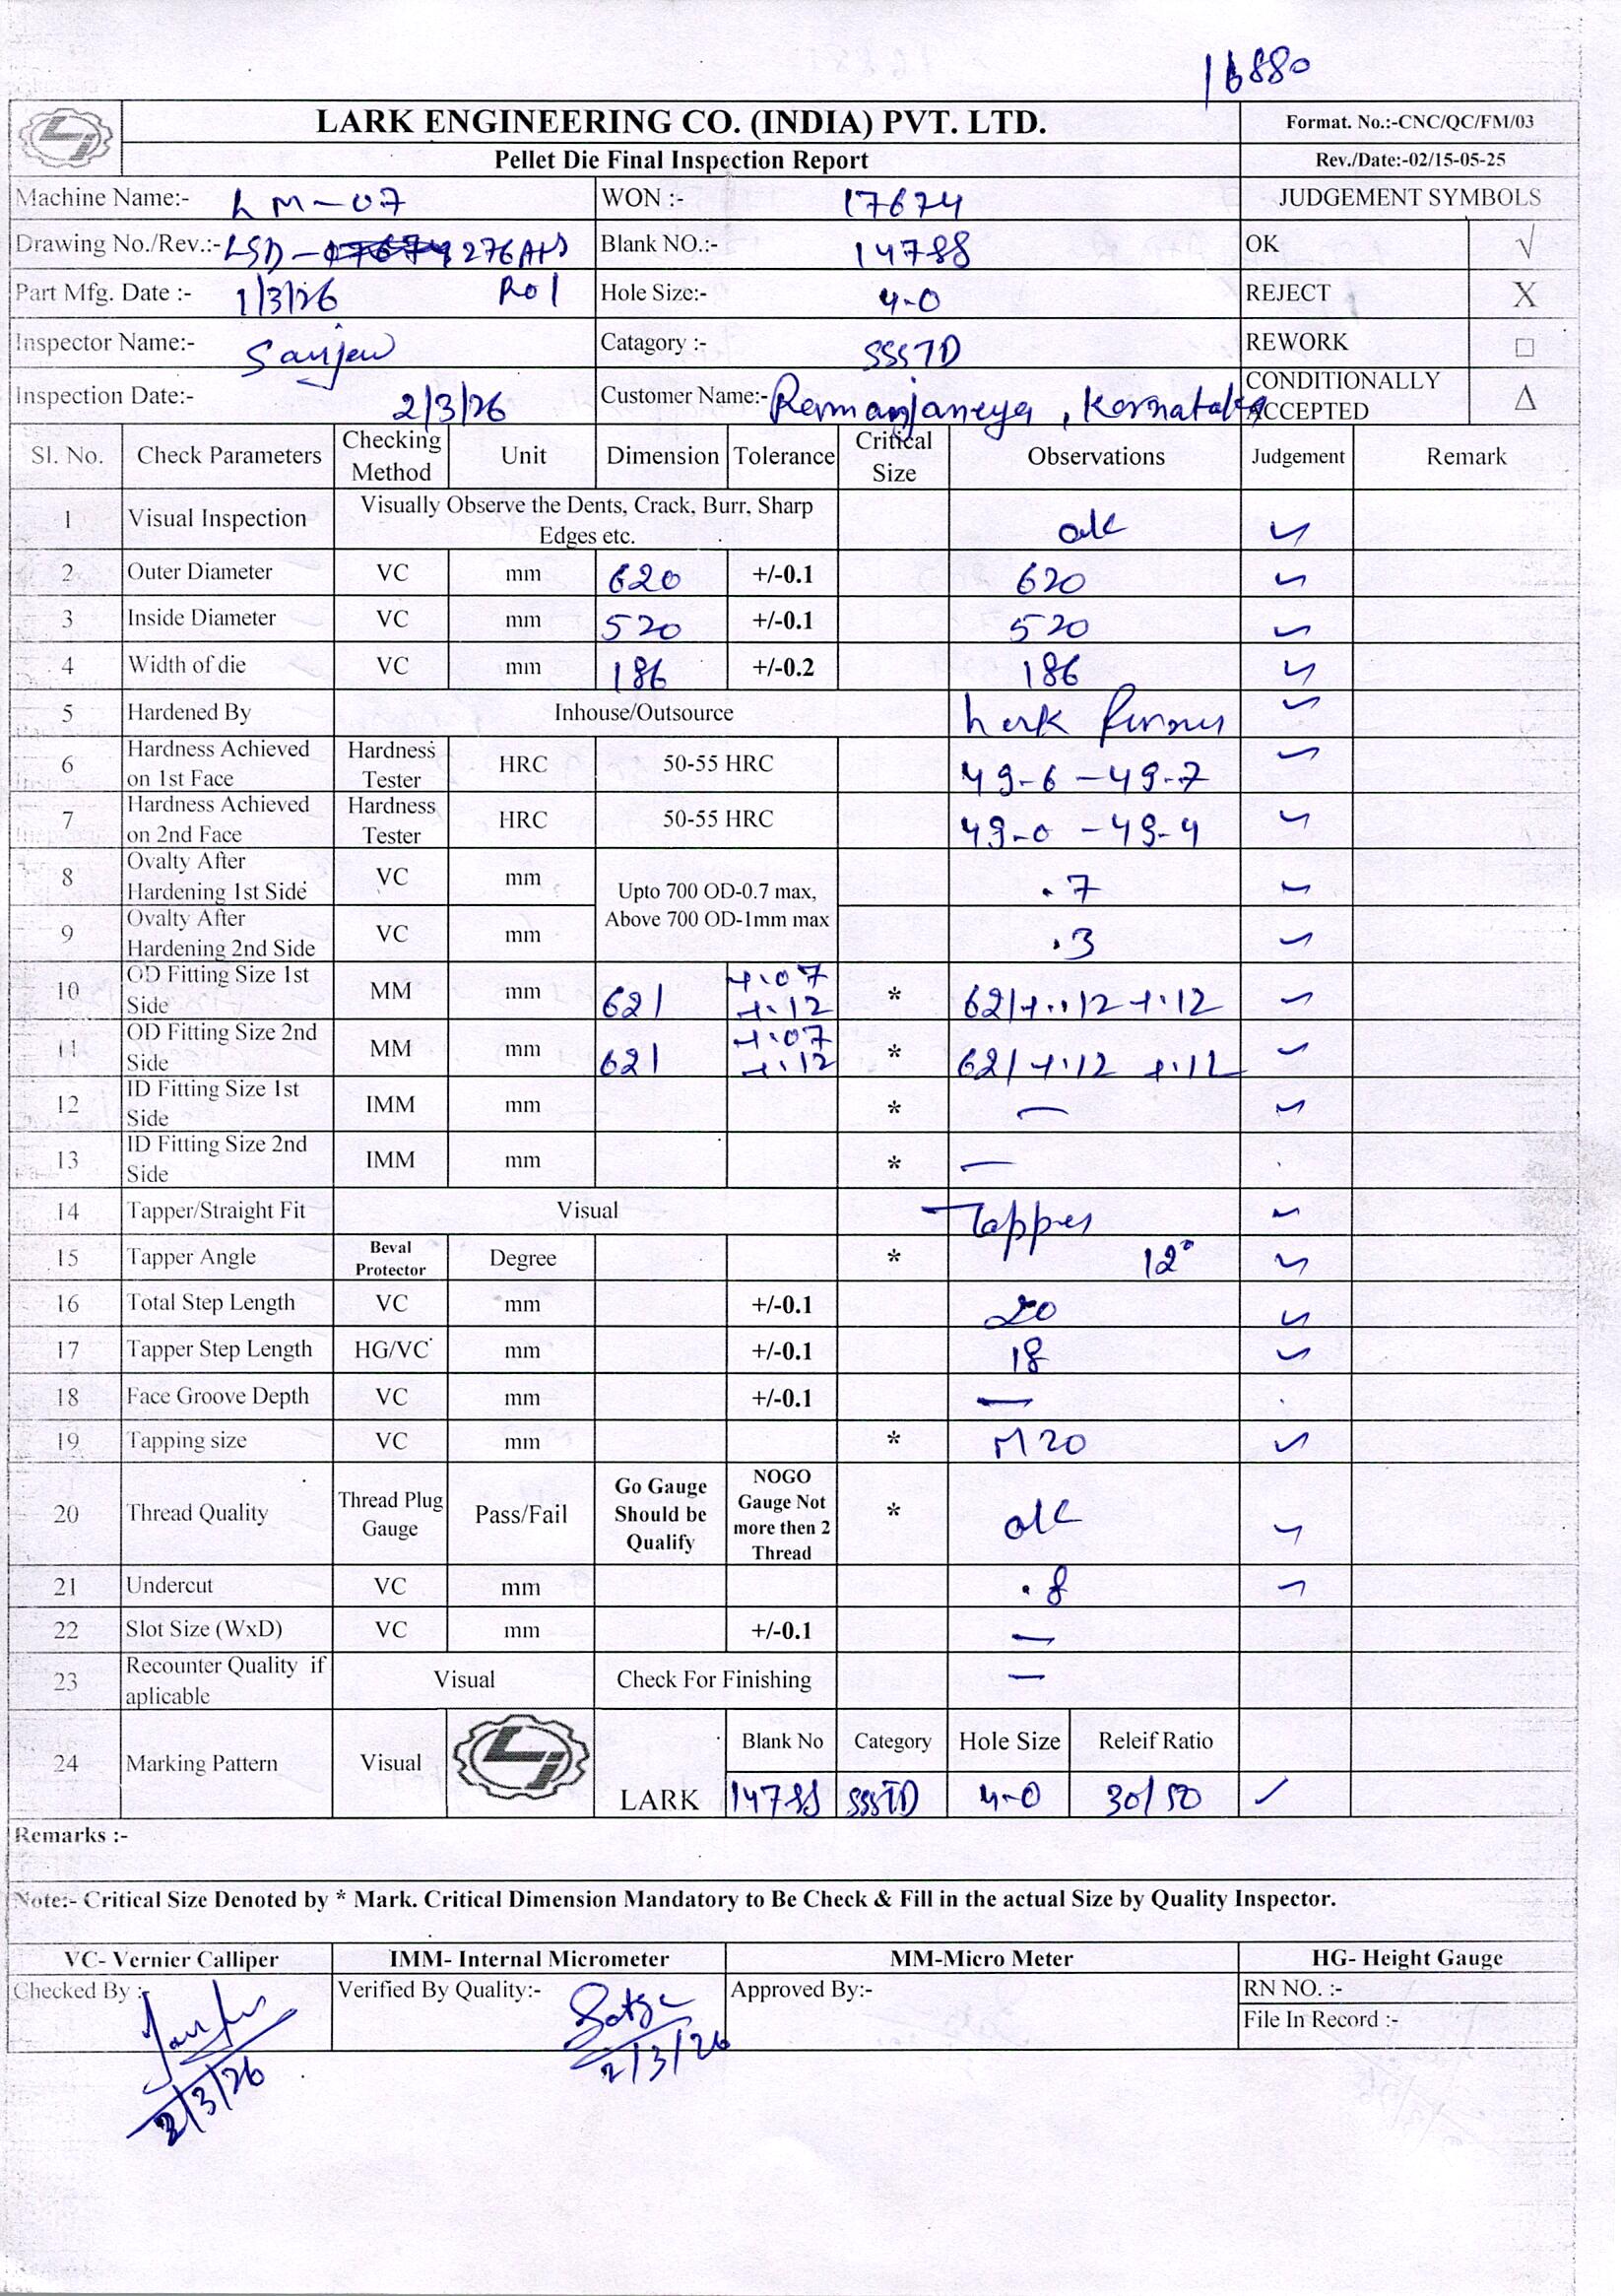 16880
LARK ENGINEERING CO. (INDIA) PVT. LTD.
Format. No.:-CNC/QC/FM/03
Pellet Die Final Inspection Report
Rev./Date:-02/15-05-25
Machine Name:- LM-07 WON :- 17674 JUDGEMENT SYMBOLS
Drawing No./Rev.:- LSD- 276APS Blank NO.:- 14788 OK √
Part Mfg. Date :- 1/3/26 R01 Hole Size:- 4-0 REJECT X
Inspector Name:- Sanjeev Catagory :- SSSTD REWORK □
Inspection Date:- 2/3/26 Customer Name:- Ramanjaneya, Karnataka CONDITIONALLY ACCEPTED Δ
Sl. No. Check Parameters Checking Method Unit Dimension Tolerance Critical Size Observations Judgement Remark
1 Visual Inspection Visually Observe the Dents, Crack, Burr, Sharp Edges etc. ok ✓
2 Outer Diameter VC mm 620 +/-0.1 620 ✓
3 Inside Diameter VC mm 520 +/-0.1 520 ✓
4 Width of die VC mm 186 +/-0.2 186 ✓
5 Hardened By Inhouse/Outsource Lark ✓
6 Hardness Achieved on 1st Face Hardness Tester HRC 50-55 HRC 49-6 - 49-7 ✓
7 Hardness Achieved on 2nd Face Hardness Tester HRC 50-55 HRC 49-0 - 49-4 ✓
8 Ovalty After Hardening 1st Side VC mm Upto 700 OD-0.7 max, Above 700 OD-1mm max .7 ✓
9 Ovalty After Hardening 2nd Side VC mm .3 ✓
10 OD Fitting Size 1st Side MM mm 621 +.07 +.12 * 621+..12 +.12 ✓
11 OD Fitting Size 2nd Side MM mm 621 +.07 +.12 * 621+.12 +.12 ✓
12 ID Fitting Size 1st Side IMM mm * — ✓
13 ID Fitting Size 2nd Side IMM mm * —
14 Tapper/Straight Fit Visual Tapper ✓
15 Tapper Angle Beval Protector Degree * 12° ✓
16 Total Step Length VC mm +/-0.1 20 ✓
17 Tapper Step Length HG/VC mm +/-0.1 18 ✓
18 Face Groove Depth VC mm +/-0.1 —
19 Tapping size VC mm * M20 ✓
20 Thread Quality Thread Plug Gauge Pass/Fail Go Gauge Should be Qualify NOGO Gauge Not more then 2 Thread * ok ✓
21 Undercut VC mm .8 ✓
22 Slot Size (WxD) VC mm +/-0.1 —
23 Recounter Quality if aplicable Visual Check For Finishing —
24 Marking Pattern Visual LARK Blank No Category Hole Size Releif Ratio
14788 SSSTD 4-0 30/50 ✓
Remarks :-
Note:- Critical Size Denoted by * Mark. Critical Dimension Mandatory to Be Check & Fill in the actual Size by Quality Inspector.
VC- Vernier Calliper IMM- Internal Micrometer MM-Micro Meter HG- Height Gauge
Checked By :- Verified By Quality:- Approved By:- RN NO. :-
File In Record :-
2/3/26 2/3/26